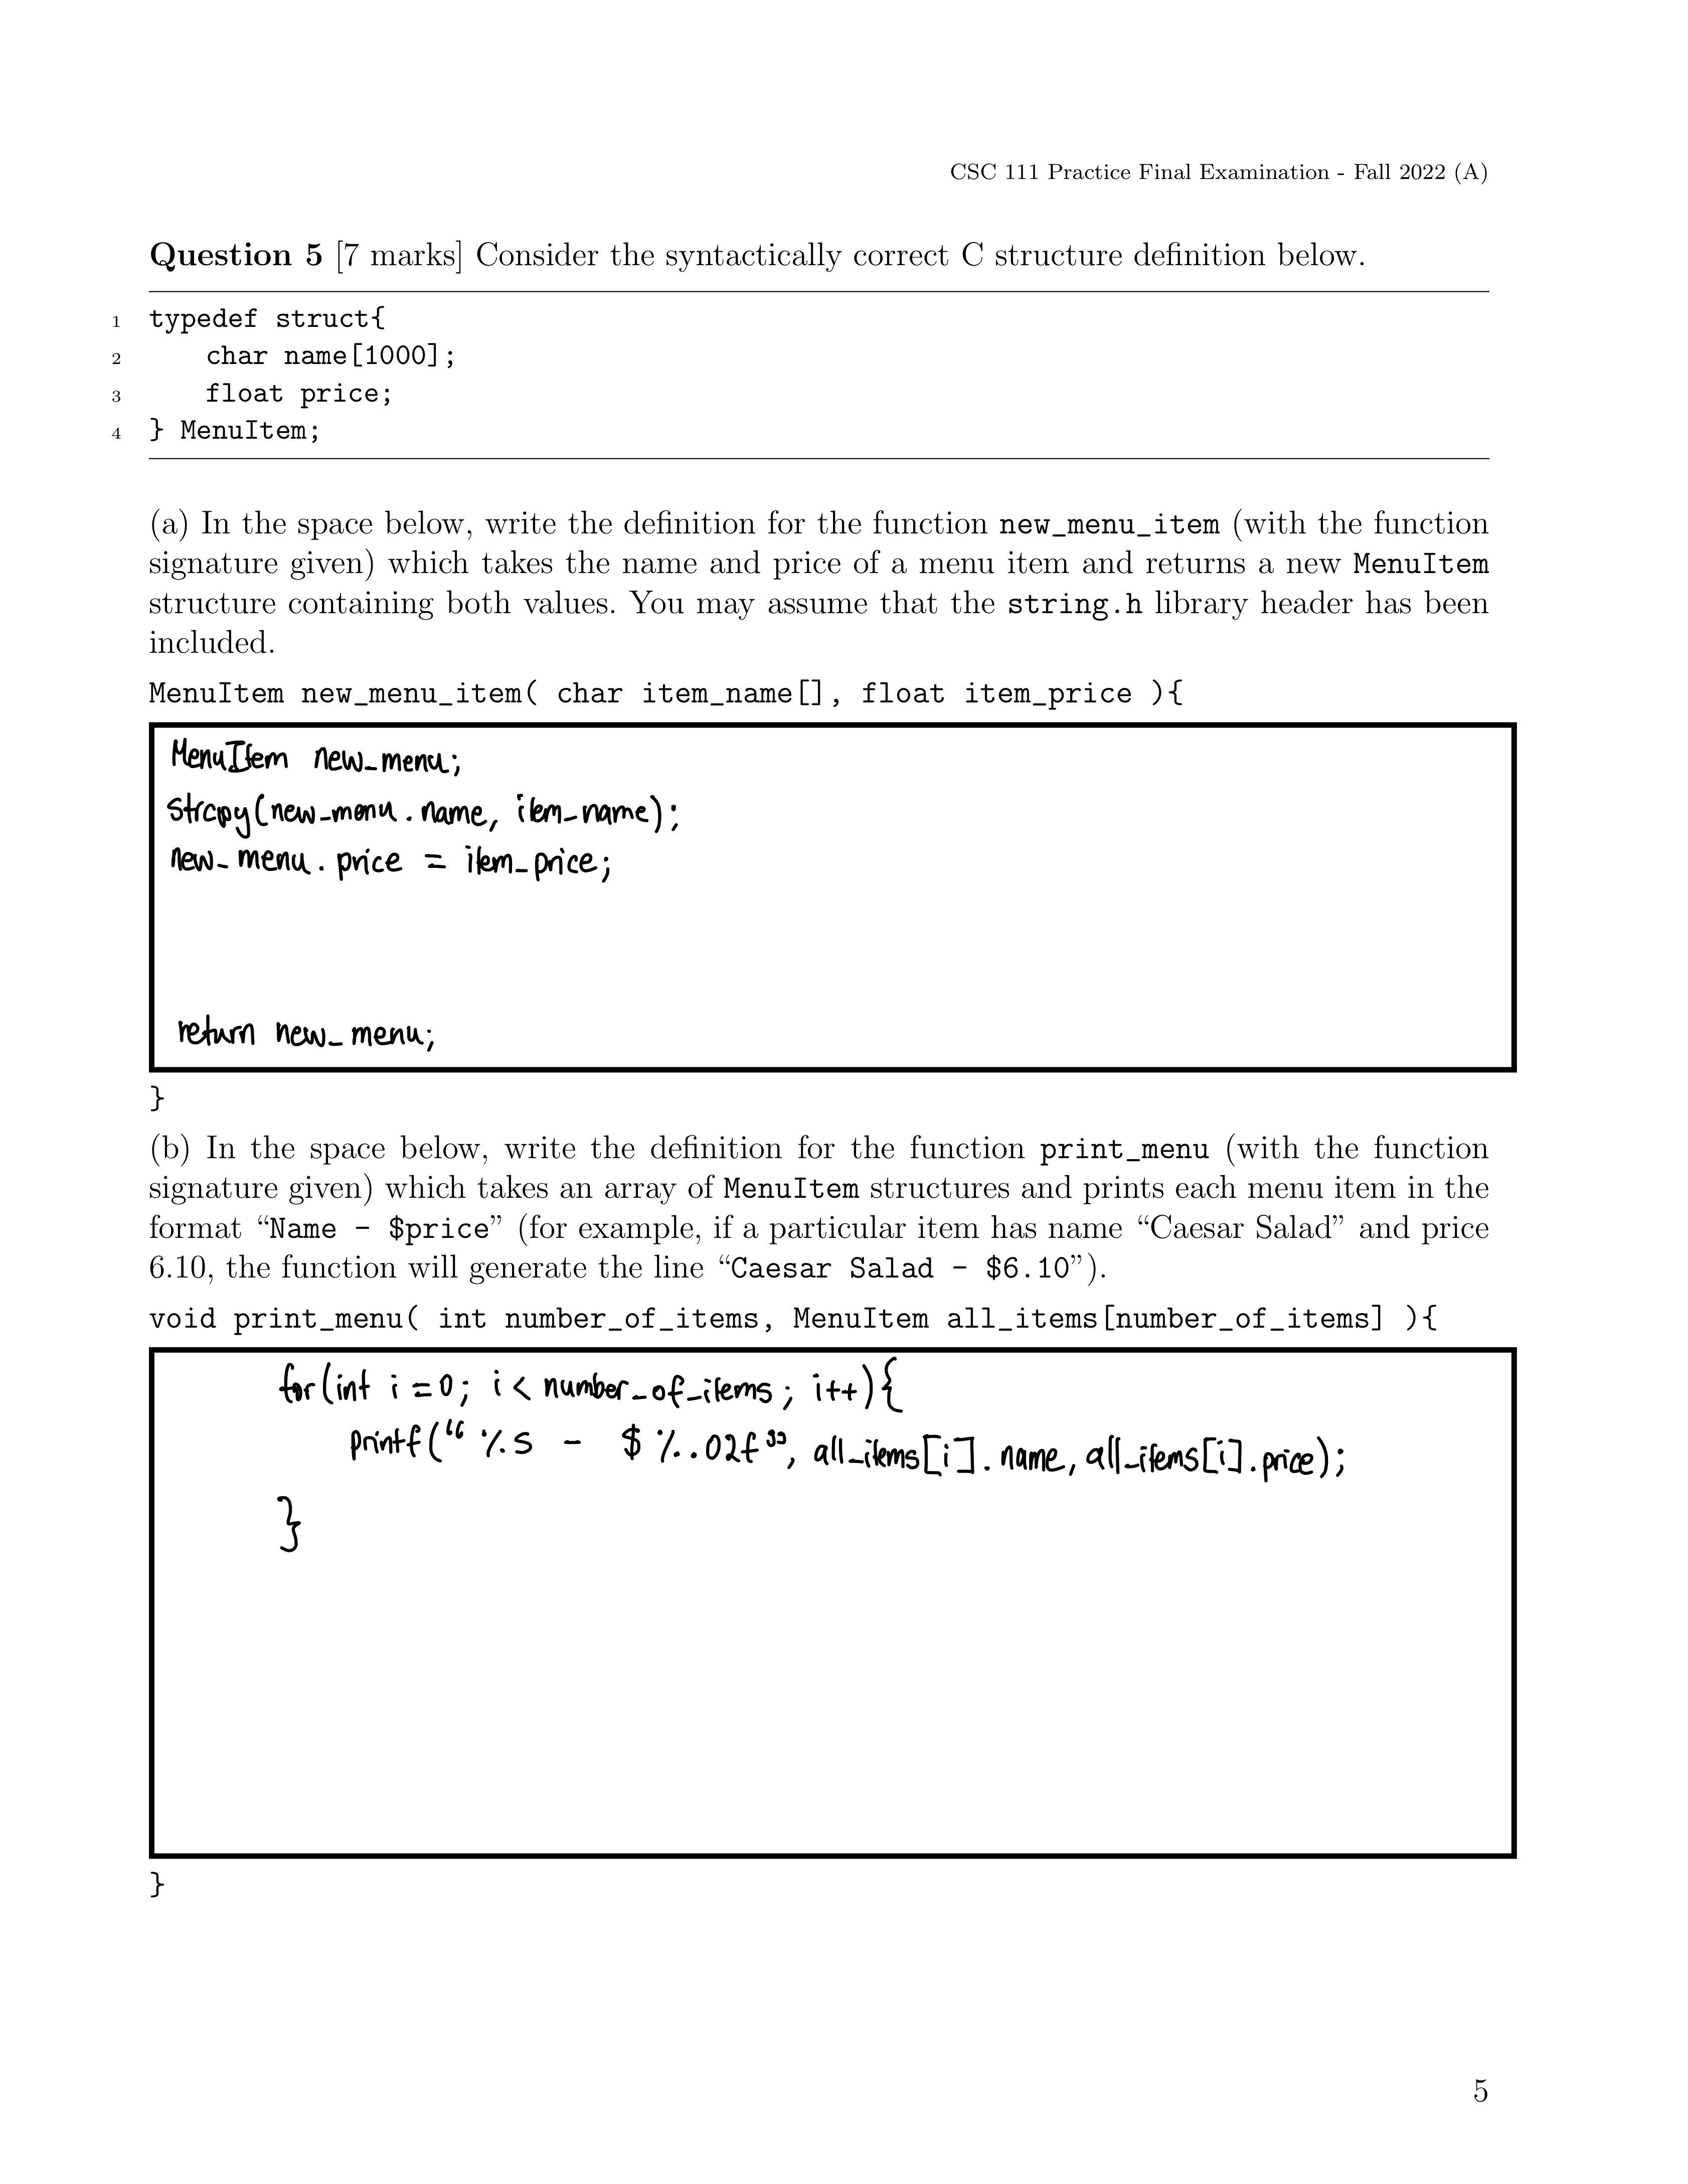 CSC 111 Practice Final Examination - Fall 2022 (A)
Question 5 [7 marks] Consider the syntactically correct C structure definition below.
1 typedef struct{
2 char name[1000];
3 float price;
4 } MenuItem;
(a) In the space below, write the definition for the function new_menu_item (with the function
signature given) which takes the name and price of a menu item and returns a new MenuItem
structure containing both values. You may assume that the string.h library header has been
included.
MenuItem new_menu_item( char item_name[], float item_price ){
MenuItem new_menu;
strcpy(new_menu.name, item_name);
new_menu.price = item_price;
return new_menu;
}
(b) In the space below, write the definition for the function print_menu (with the function
signature given) which takes an array of MenuItem structures and prints each menu item in the
format “Name - $price” (for example, if a particular item has name “Caesar Salad” and price
6.10, the function will generate the line “Caesar Salad - $6.10”).
void print_menu( int number_of_items, MenuItem all_items[number_of_items] ){
for(int i=0; i < number_of_items; i++){
printf(“%s - $%.02f”, all_items[i].name, all_items[i].price);
}
}
5